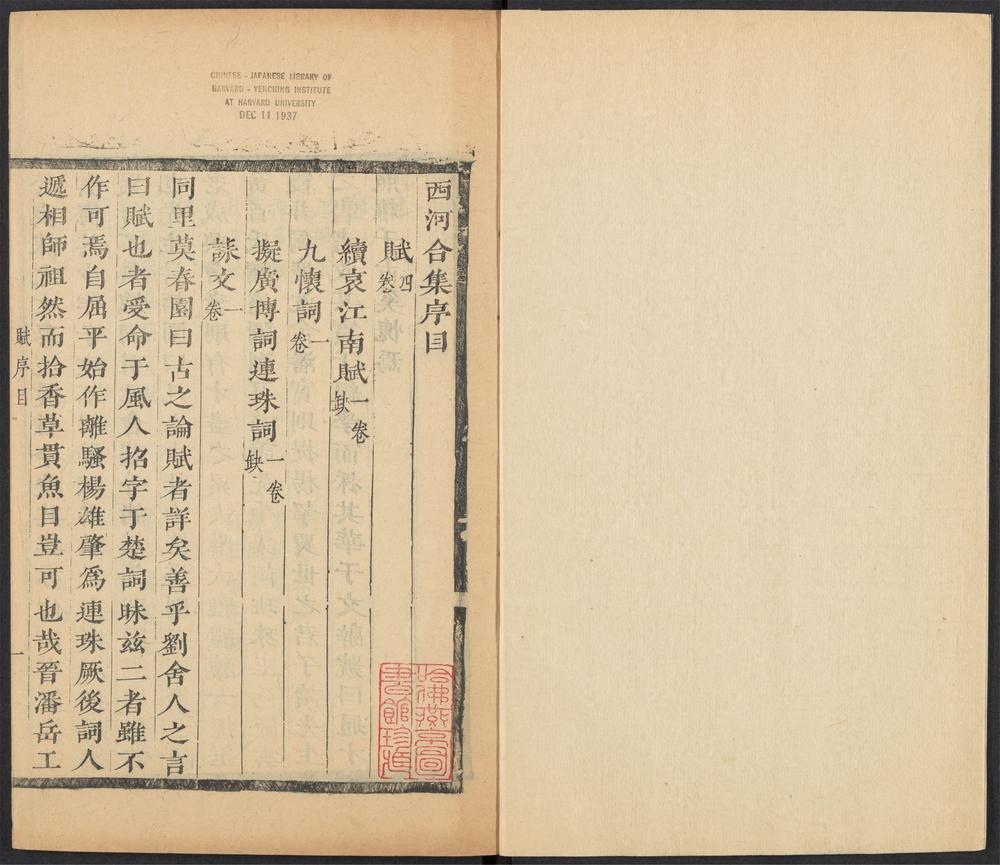 CHINESE - JAPANESE LIBRARY OF
HARVARD - YENCHING INSTITUTE
AT HARVARD UNIVERSITY
DEC 11 1937
西河合集序目
賦四卷
續哀江南賦一卷缺
九懷詞一卷
擬廣博詞連珠詞一卷缺
誄文一卷
同里莫春園曰古之論賦者詳矣善乎劉舍人之言
曰賦也者受命于風人招字于楚詞昧兹二者雖不
作可焉自屈平始作離騷楊雄肇爲連珠厥後詞人
遞相師祖然而拾香草貫魚目豈可也哉晉潘岳工
賦序目
一
哈佛燕京圖書館珍藏